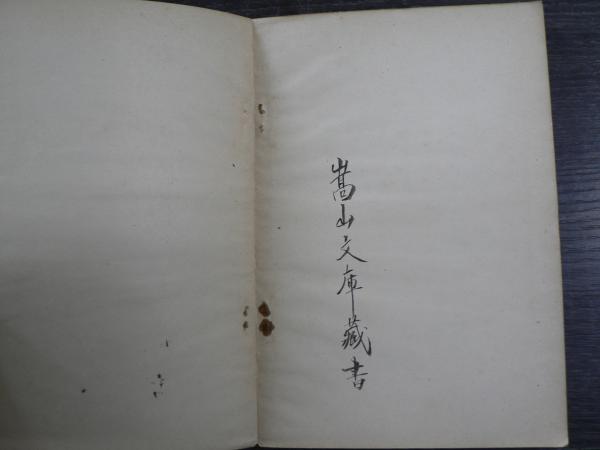 嵩山文庫藏書